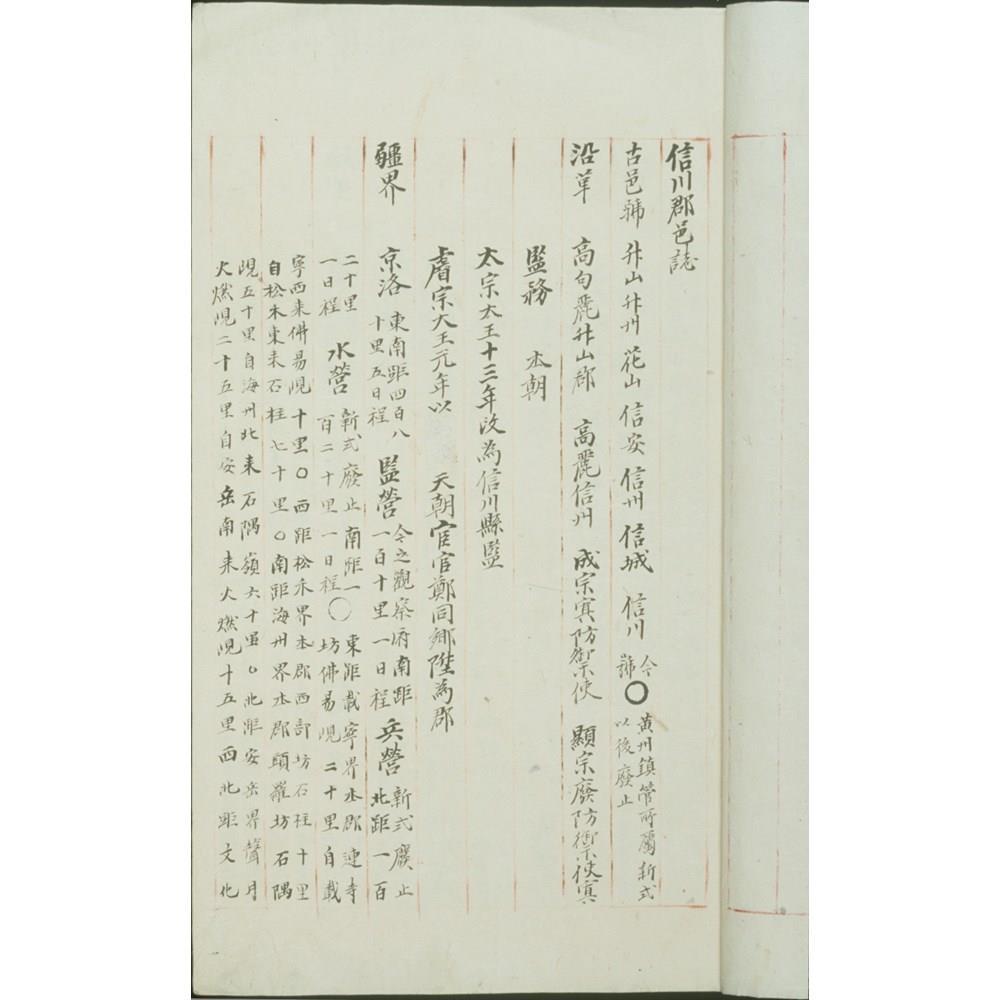 信川郡邑誌
古邑號 升山 升州 花山 信安 信州 信城 信川 今號 ○ 黃州鎮管所屬新式以後廢止
沿革 高句麗升山郡 高麗信州 成宗寘防禦使 顯宗廢防禦使寘
監務 本朝
太宗大王十三年改為信川縣監
睿宗大王元年以 天朝宦官鄭同鄉陞為郡
疆界 京洛 東南距四百八十里五日程 監營 今之觀察府南距一百十里一日程 兵營 新式廢止北距一百
二十里一日程 水營 新式廢止南距一百二十里一日程 ○ 東距載寧界本郡連寺坊佛昜峴二十里自載
寧西來佛昜峴十里○西距松禾界本郡西部坊石柱十里
自松禾東來石柱七十里○南距海州界本郡頭羅坊石隅
峴五十里自海州北來石隅嶺六十里○北距安岳界聲月
火燃峴二十五里自安岳南來火燃峴十五里西北距文化